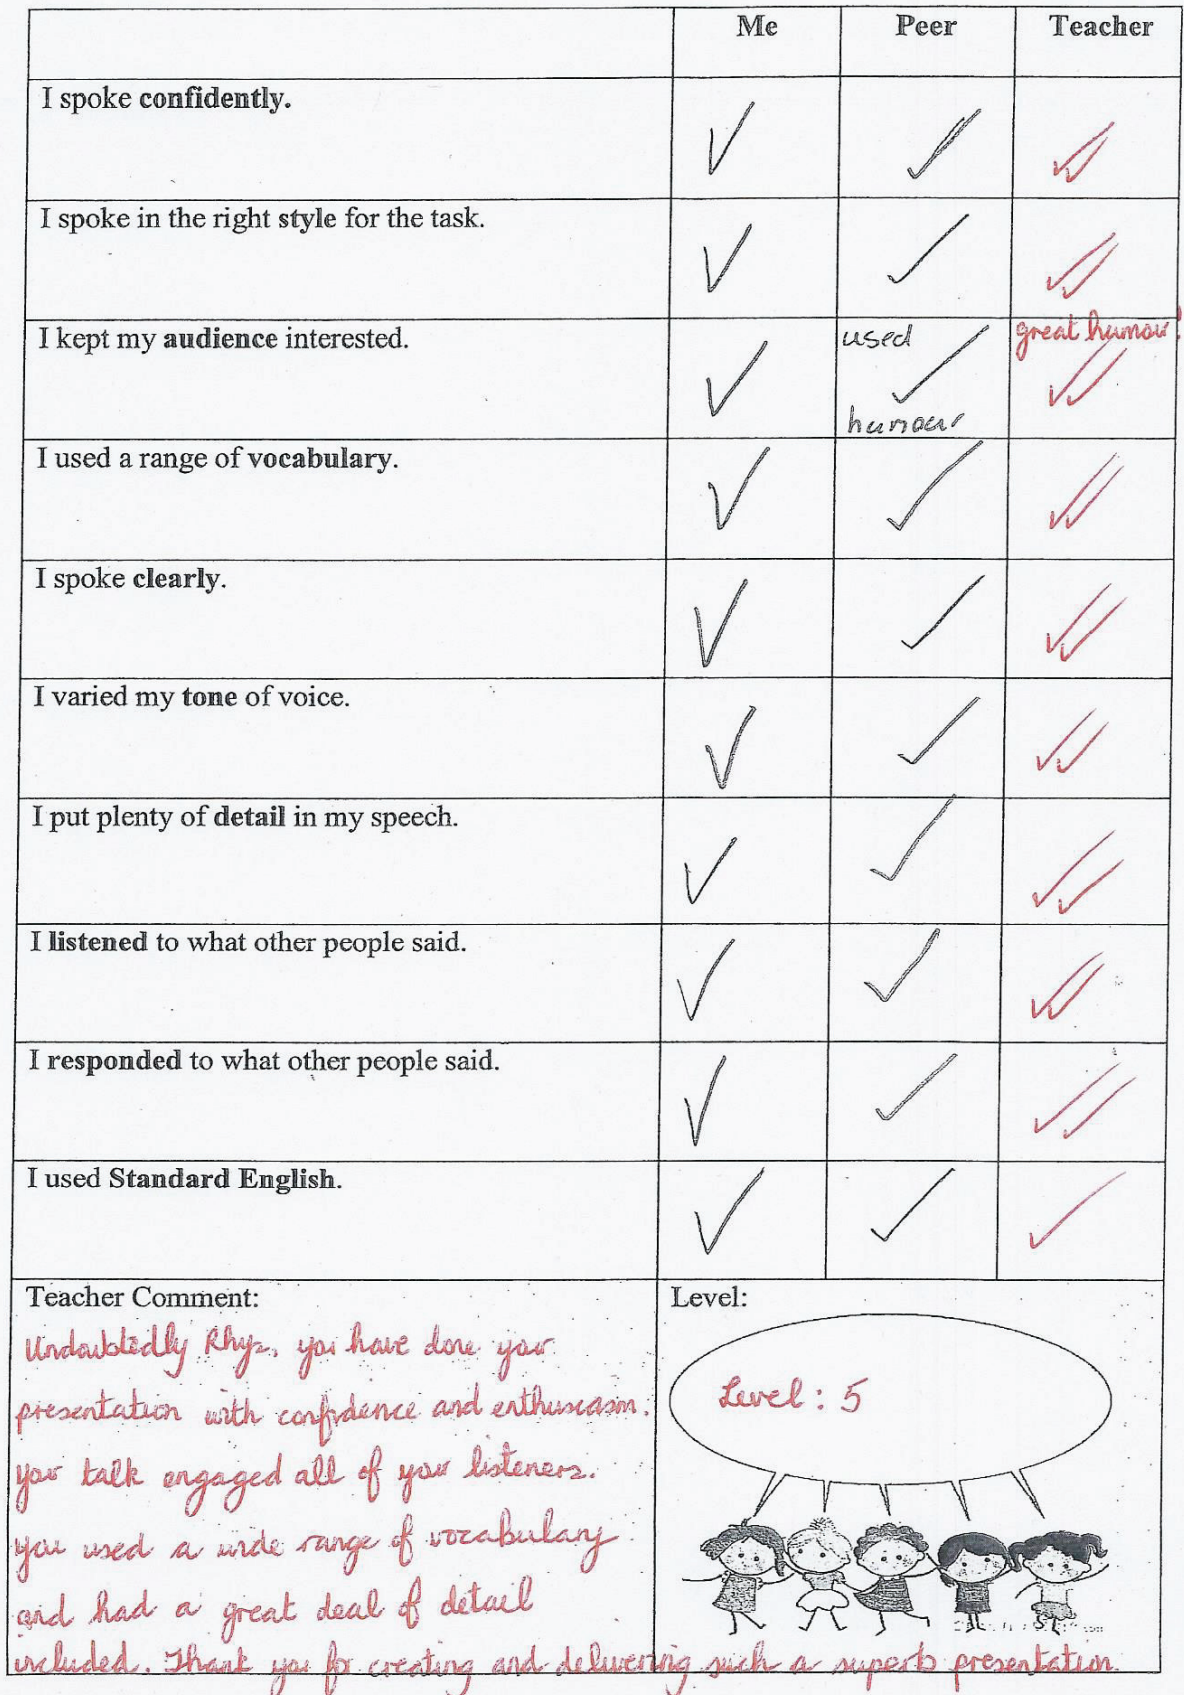 Me Peer Teacher
I spoke confidently.
I spoke in the right style for the task.
I kept my audience interested.
used
humour
great humour!
I used a range of vocabulary.
I spoke clearly.
I varied my tone of voice.
I put plenty of detail in my speech.
I listened to what other people said.
I responded to what other people said.
I used Standard English.
Teacher Comment:
Undoubtedly Rhys, you have done your
presentation with confidence and enthusiasm.
your talk engaged all of your listeners.
you used a wide range of vocabulary
and had a great deal of detail
included. Thank you for creating and delivering such a superb presentation.
Level:
Level: 5